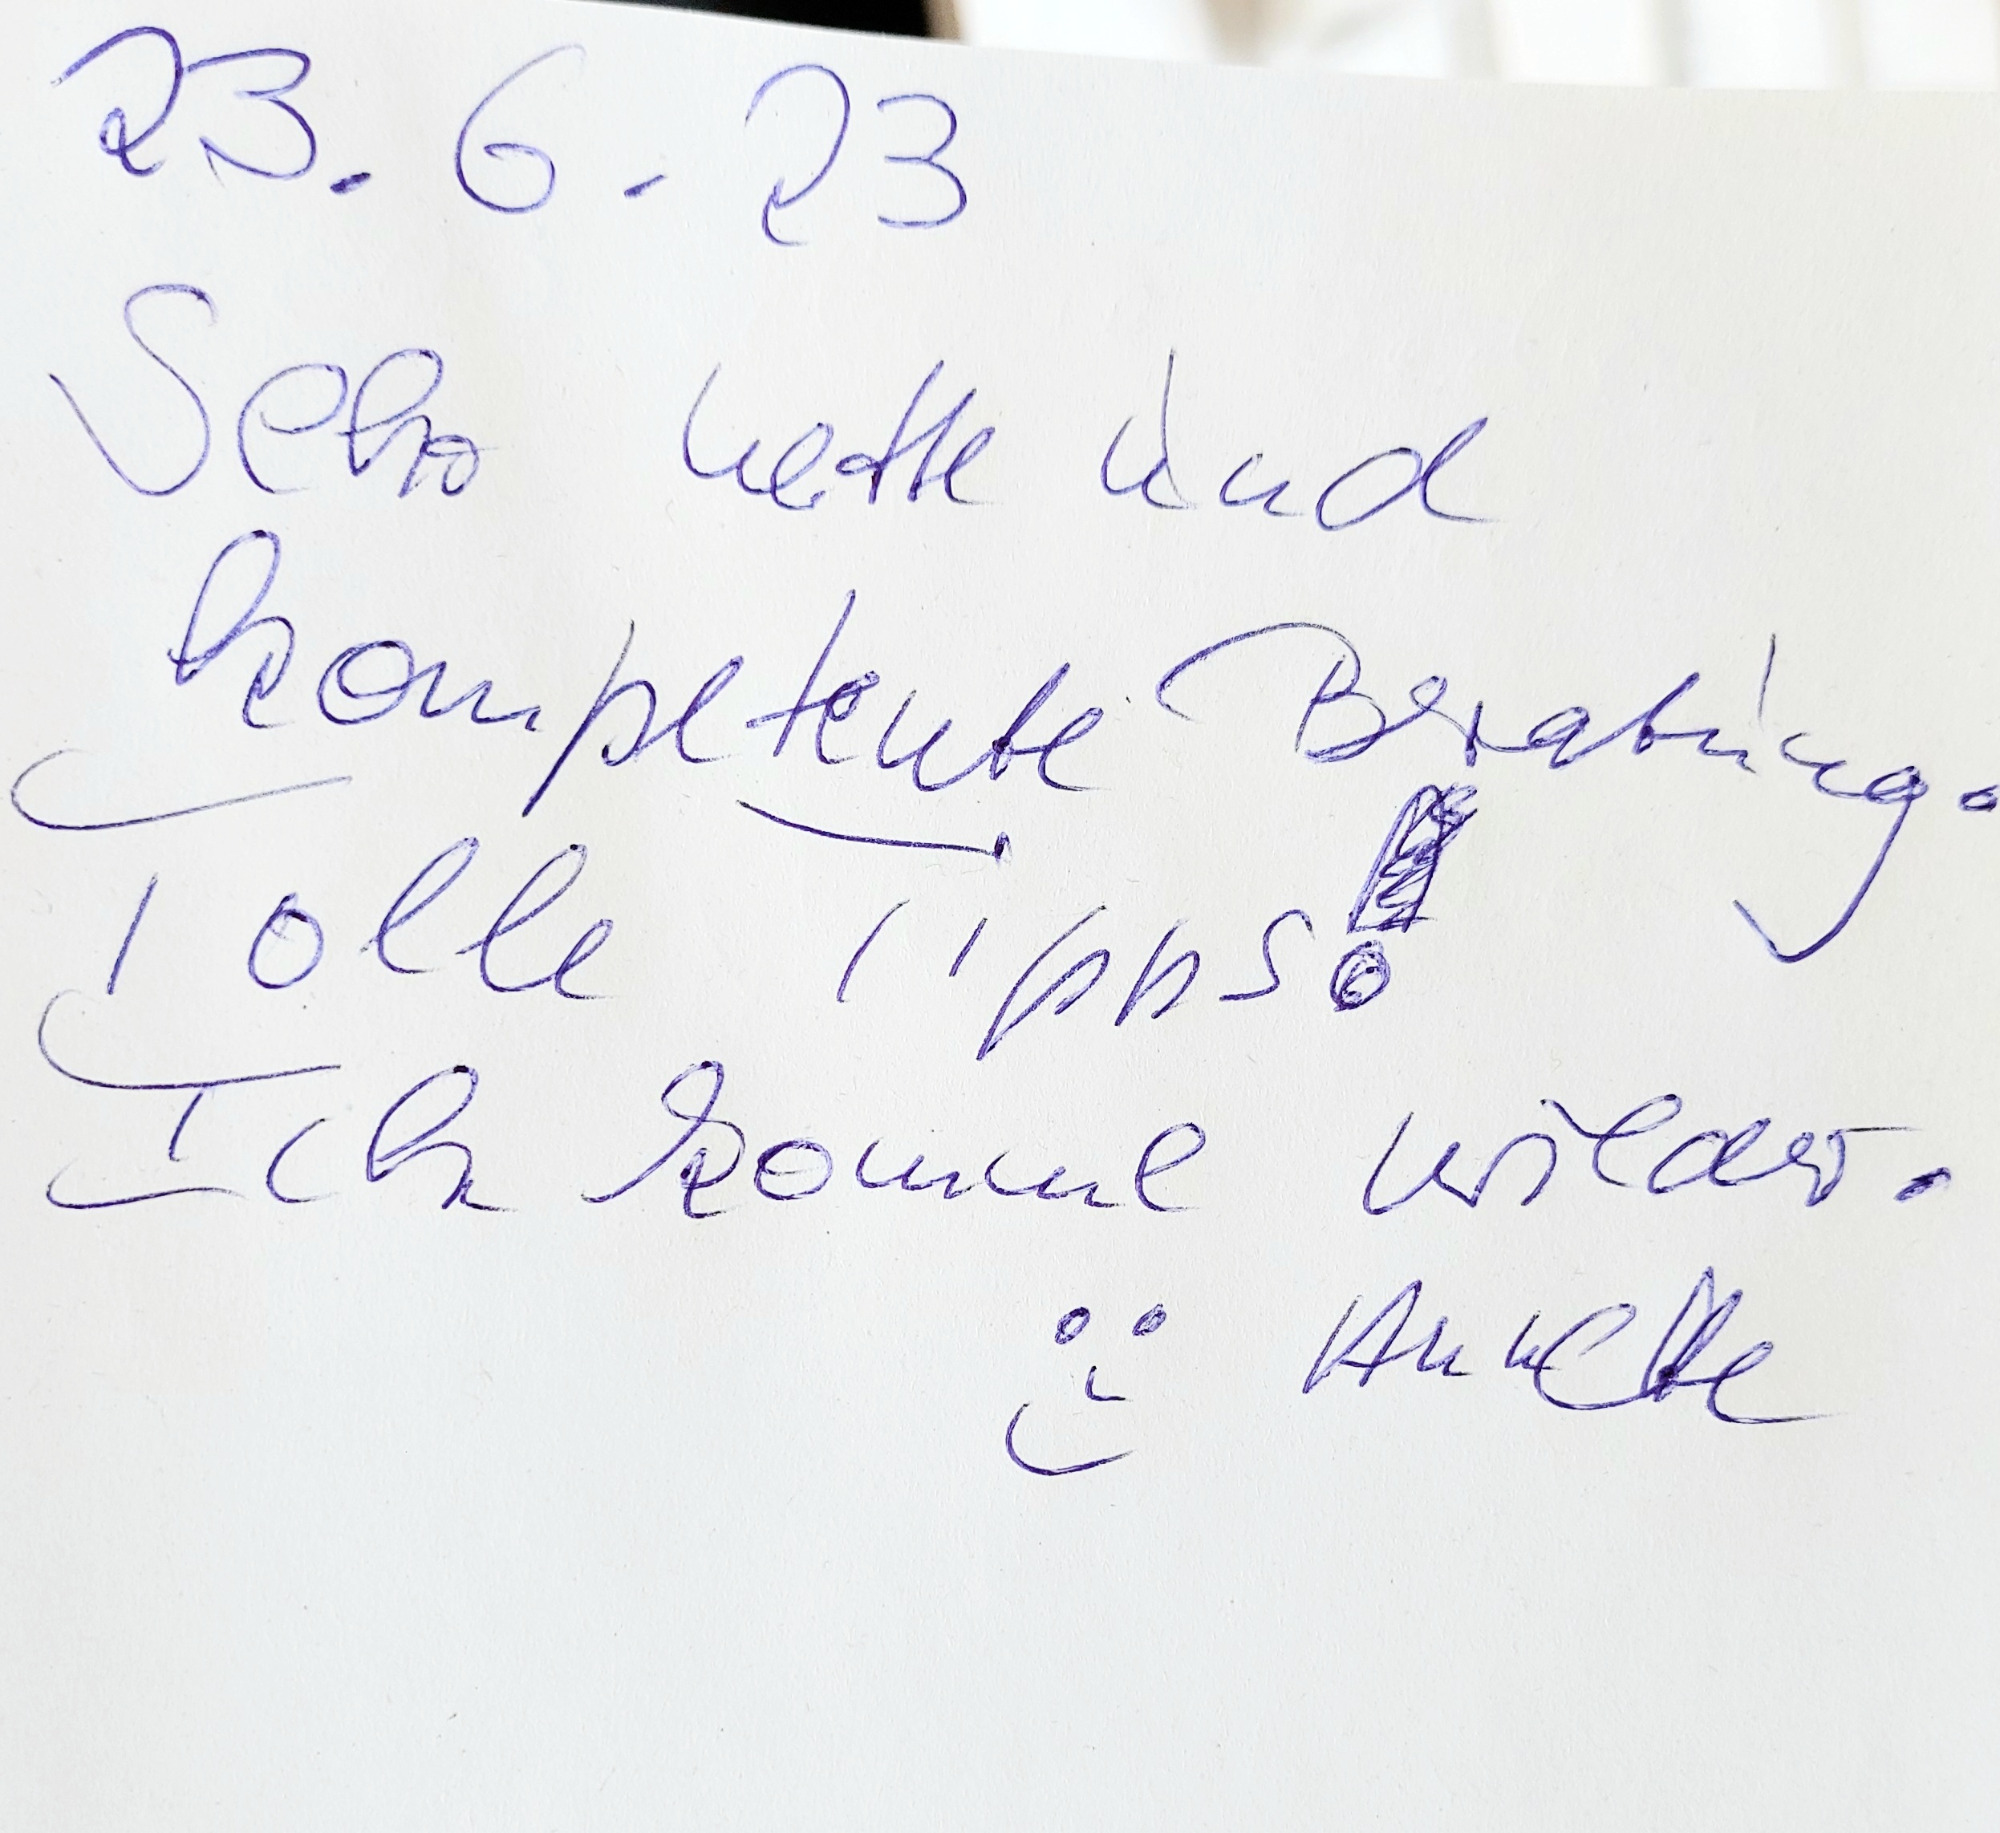 23. 6. 23
Sehr nette und
kompetente Beratung.
Tolle Tipps!
Ich komme wieder.
Annette